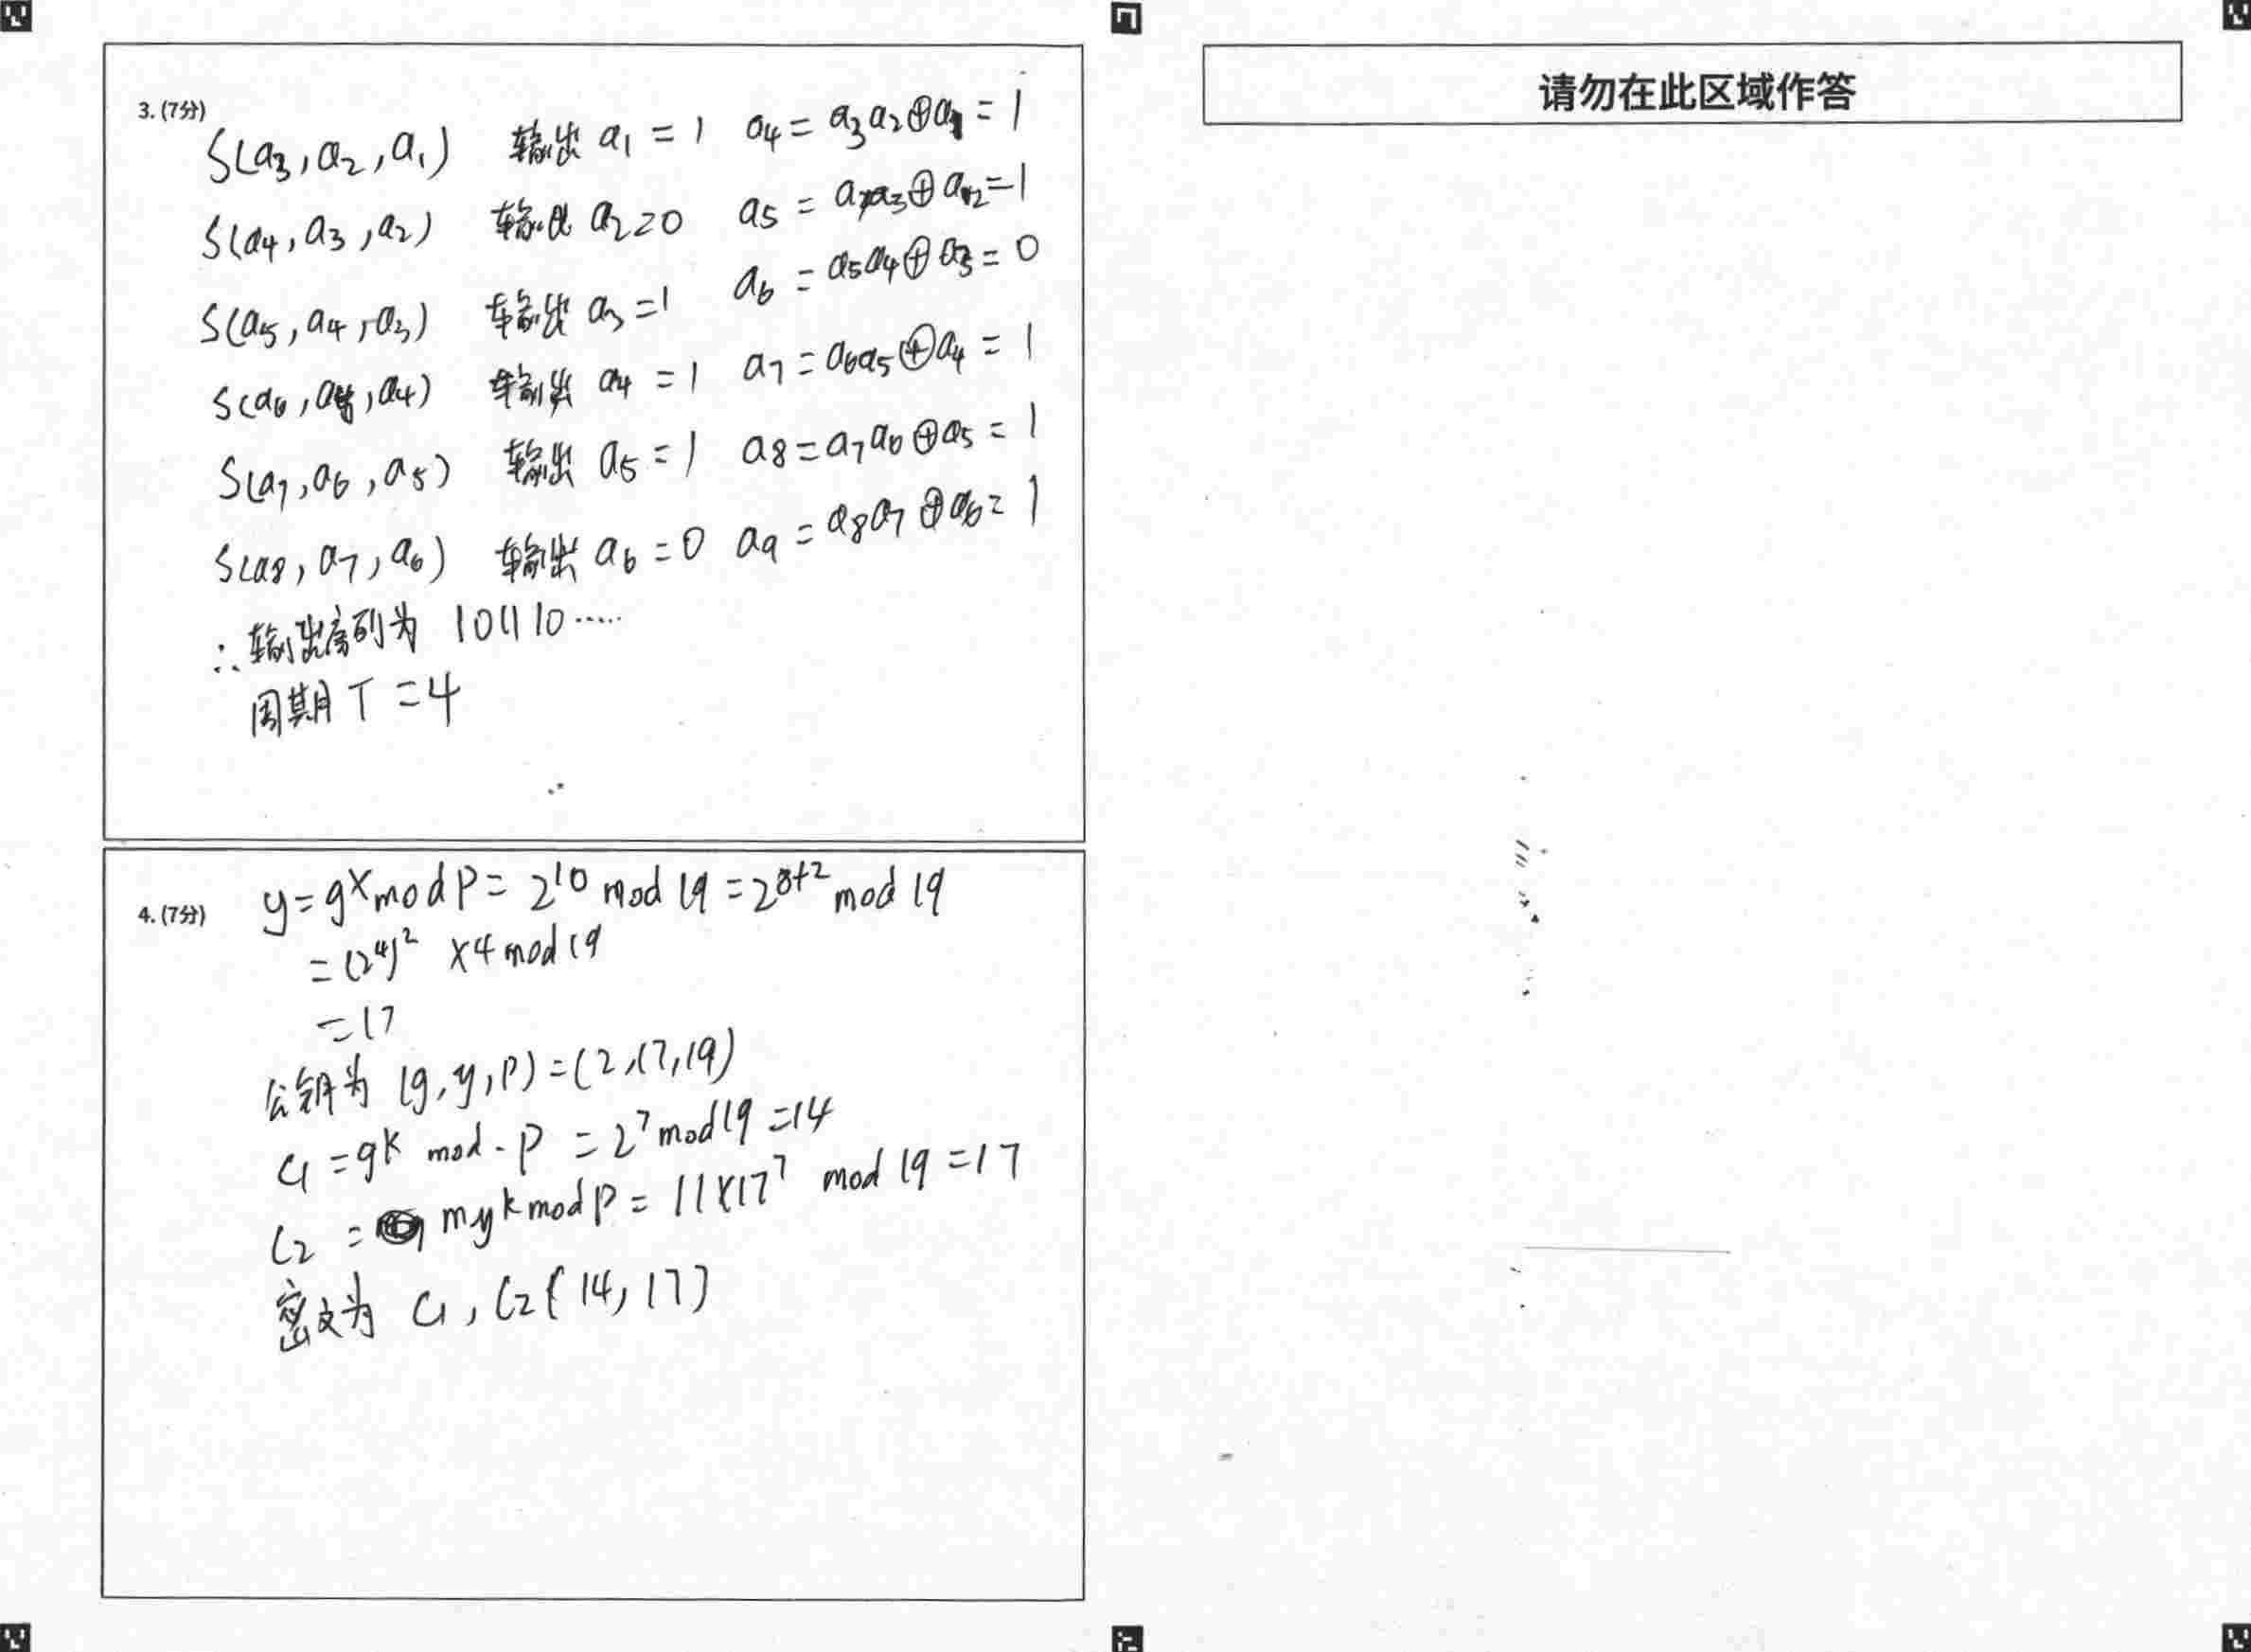 3. (7分)
S(a3, a2, a1) 输出 a1 = 1 a4 = a3a2⊕a1 = 1
S(a4, a3, a2) 输出 a2 = 0 a5 = a4a3⊕a2 = 1
S(a5, a4, a3) 输出 a3 = 1 a6 = a5a4⊕a3 = 0
S(a6, a5, a4) 输出 a4 = 1 a7 = a6a5⊕a4 = 1
S(a7, a6, a5) 输出 a5 = 1 a8 = a7a6⊕a5 = 1
S(a8, a7, a6) 输出 a6 = 0 a9 = a8a7⊕a6 = 1
∴输出序列为 101110……
周期 T = 4
4. (7分)
y = g^x mod p = 2^10 mod 19 = 2^8+2 mod 19
= (2^4)^2 ×4 mod 19
= 17
公钥为 (g, y, p) = (2, 17, 19)
c1 = g^k mod p = 2^7 mod 19 = 14
c2 = my^k mod p = 11×17^7 mod 19 = 17
密文为 c1, c2 { 14, 17 }
请勿在此区域作答